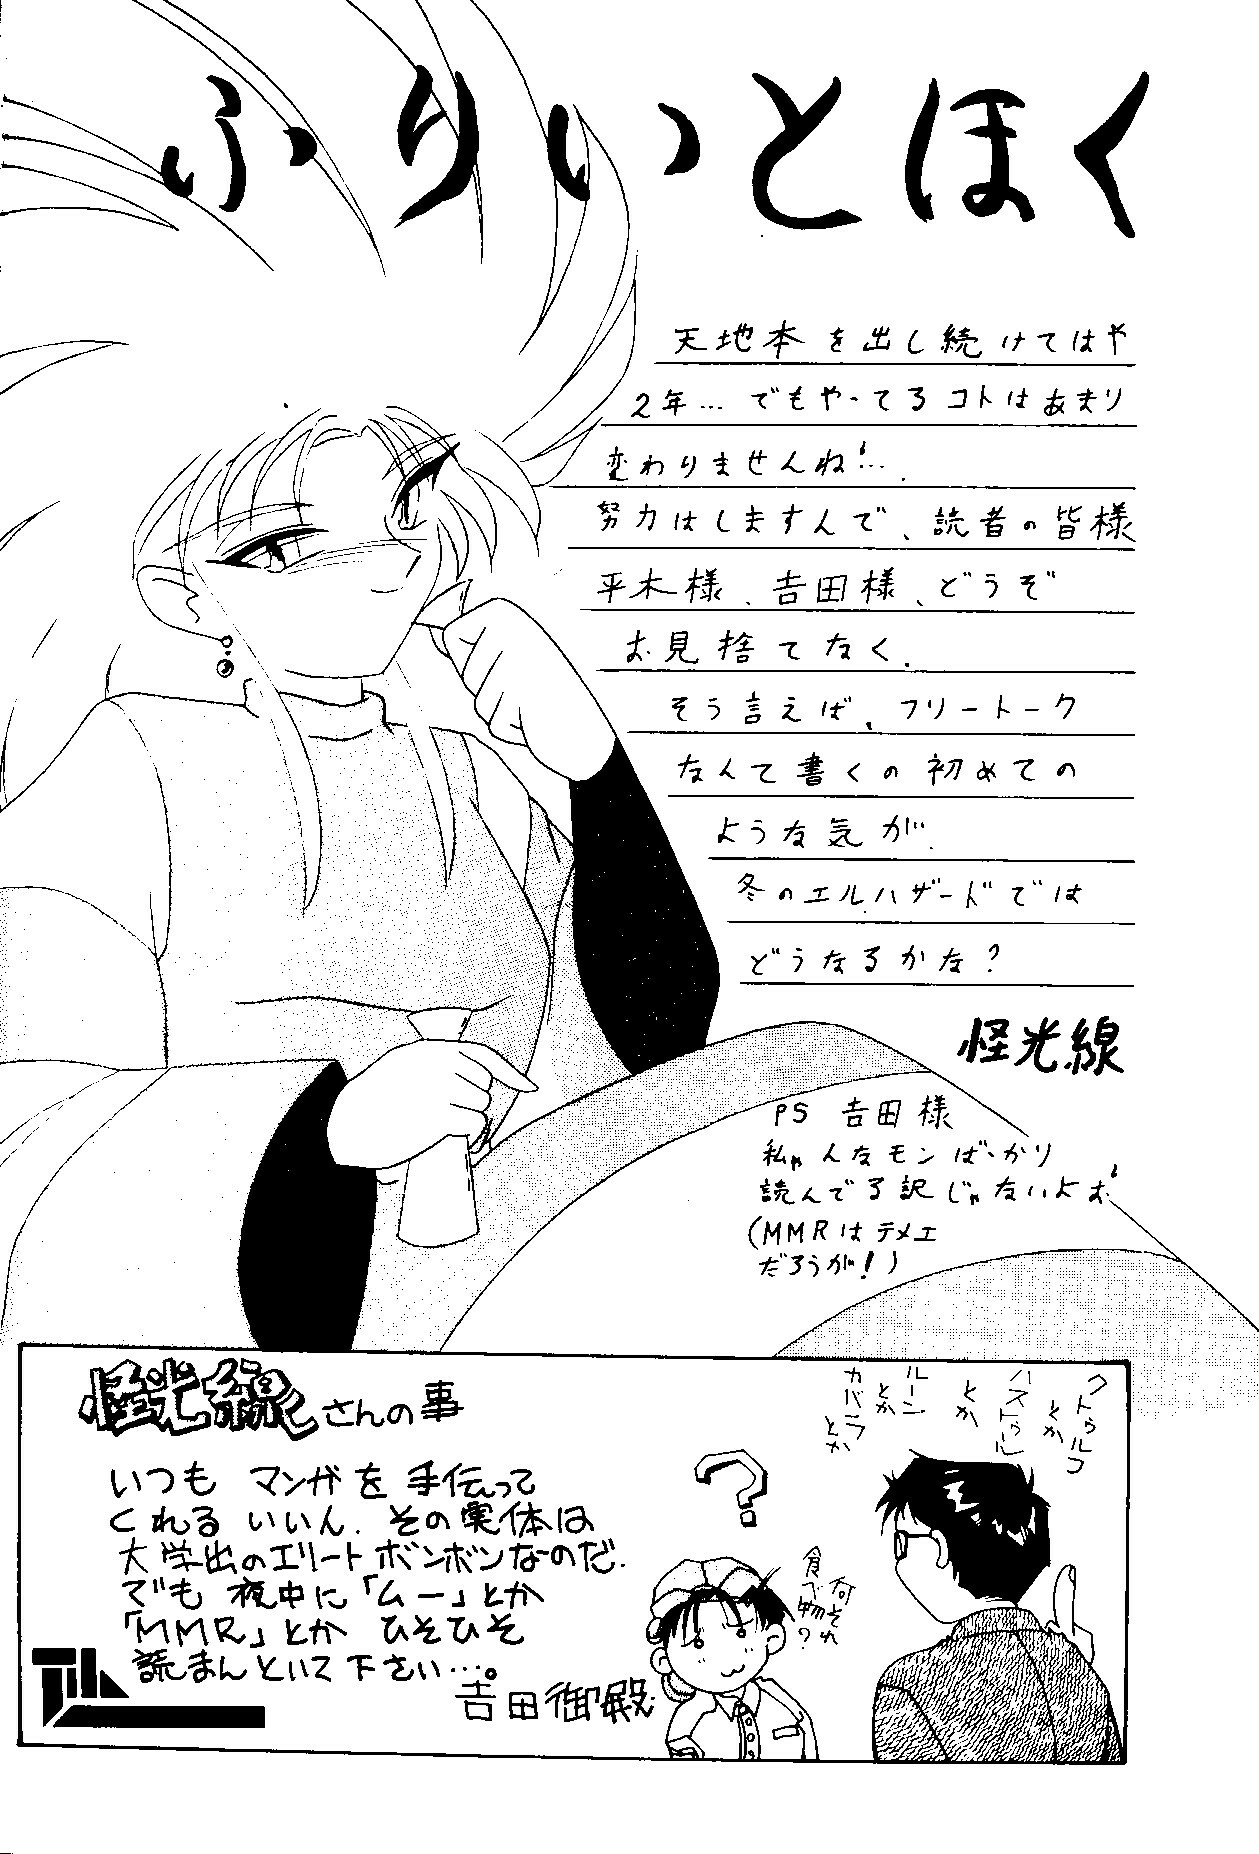 ふりいとほく
天地本を出し続けてはや
2年…でもやってるコトはあまり
変わりませんね!…
努力はしますんで、読者の皆様
平木様、吉田様、どうぞ
お見捨てなく、
そう言えば、フリートーク
なんて書くの初めての
ような気が、
冬のエルハザードでは
どうなるかな?
怪光線
PS 吉田様
私ゃんなモンばっかり
読んでる訳じゃないよお!
(MMRはテメエ
だろうが!)
怪光線さんの事
いつも マンガを 手伝って
くれる いいん、その実体は
大学出のエリートボンボンなのだ、
でも 夜中に「ムー」とか
「MMR」とか ひそひそ
読まんといて下さい…。
吉田御殿
クトゥルフ
とか
ハストゥル
とか
ルーン
とか
カバラ
とか
?
何それ
食べ物?